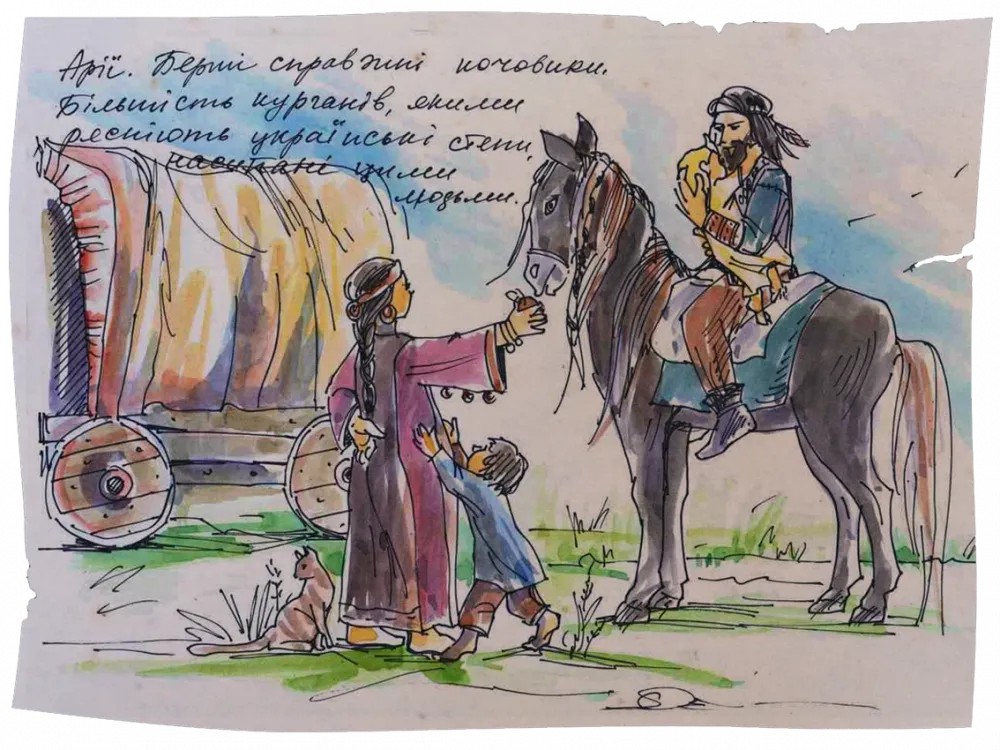 Арії. Перші справжні кочовики.
Більшість курганів, якими
рясніють українські степи,
насипані цими
людьми.